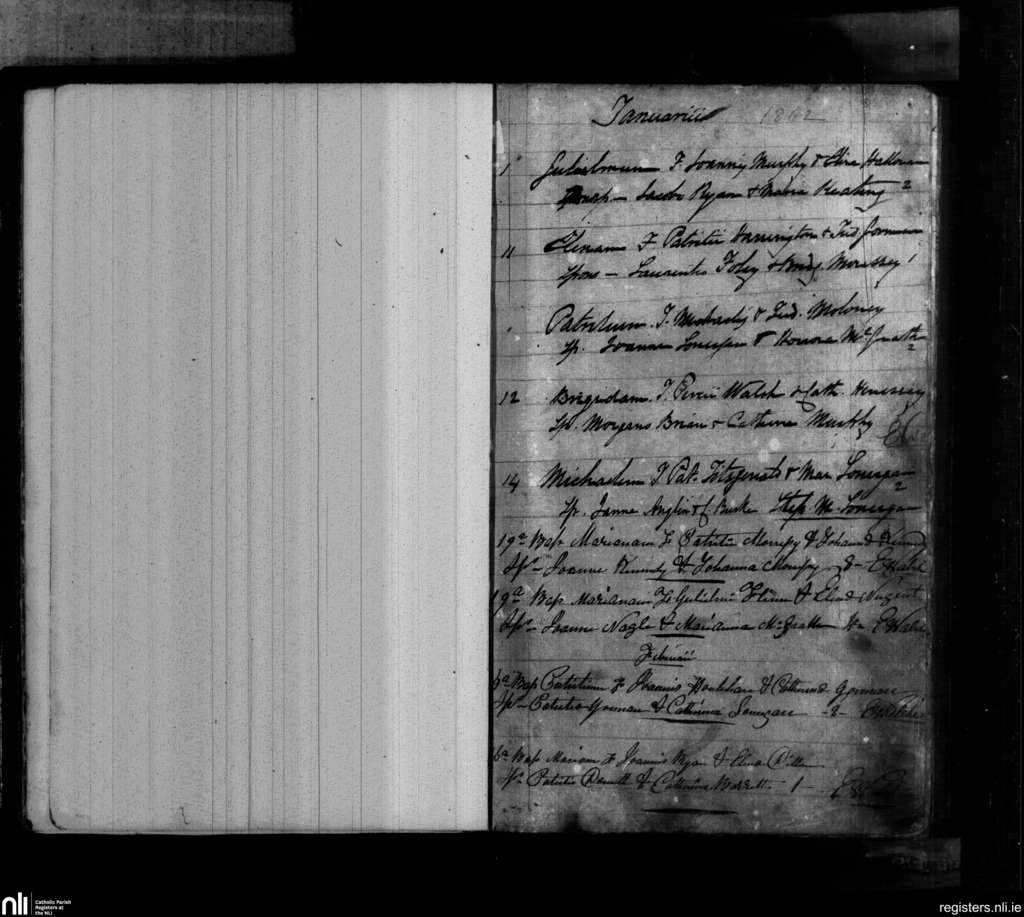 Januarii 1862
1 Gulielmum F. Joannis Murphy & Elisa Halloran
Sponsp — Jacobo Ryan & Maria Keating 2
11 Elenam F Patritii Harrington & Jud. Gorman
Spons — Laurentio Foley & Bridg. Morrissey 1
Patritium. F. Michaelis & Jud. Moloney
Sp. Joanne Lonergan & Honora McGrath 2
12 Brigidam. F. Petrii Walsh & Cath. Henessey
Sp. Morgano Brian & Catherina Murphy
14 Michaelem F Pat. Fitzgerald & Mar Lonergan 2
Sp. Janne Anglin & C Burke Step. M. Lonergan
19a Bap Marianam F Patritii & Johanna
Sp— Joanne Kennedy & Johanna 2— EWalsh
19a Bap Marianam F Gulielmi Flinn & Elena Nugent
Sp— Joanne Nagle & Marianna McGrath EWalsh
Februarii
6a Bap Patritium F Joannis Houlahan & Catherina Gorman
Sp— Patritio Gorman & Catherina Lonergan —2— EWalsh
6a Bap Mariam F Joannis Ryan & Elena Dillon
Sp— Patritio & Catherina Barrett 1—
nli
Catholic Parish
Registers at
the NLI
registers.nli.ie